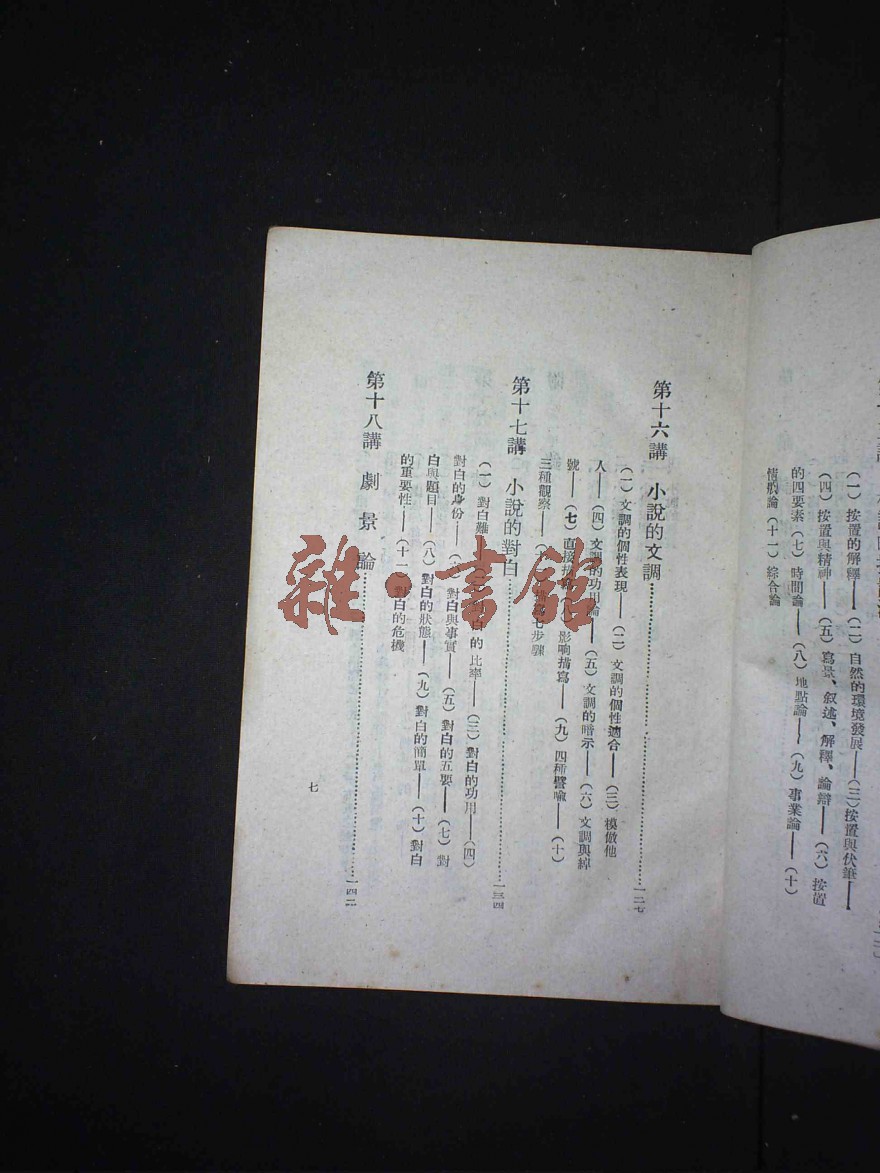 (一)按置的解釋——(二)自然的環境發展——(三)按置與伏筆——
(四)按置與精神——(五)寫景、叙述、解釋、論辯——(六)按置
的四要素(七)時間論——(八)地點論——(九)事業論——(十)
情戲論(十一)綜合論
第十六講 小說的文調……一二七
(一)文調的個性表現——(二)文調的個性適合——(三)模倣他
人——(四)文調的功用論——(五)文調的暗示——(六)文調與綽
號——(七)直接描寫——(八)影响描寫——(九)四種譬喩——(十)
三種觀察——(十一)描寫七步驟
第十七講 小說的對白……一三四
(一)對白難——(二)對白的比率——(三)對白的功用——(四)
對白的身份——(五)對白的五要——(七)對
白與題目——(八)對白的狀態——(九)對白的簡單——(十)對白
的重要性——(十一)對白的危機
第十八講 劇景論……一四二
七
雜·書館